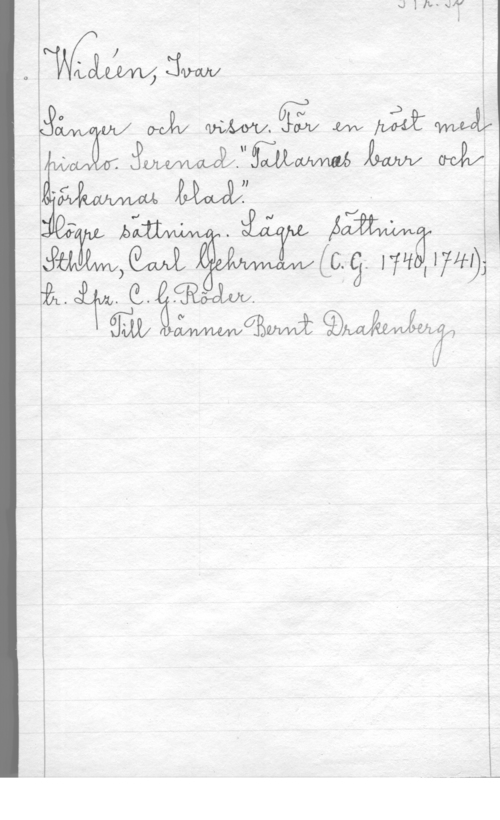 Widéen, Ivar
Sånger och visor. För en röst med
piano. Serenad. "Tallarnas barr och
björkarnas blad."
Högre sättning. Lägre sättning.
Sthlm, Carl Gehrman (C. G. 1740, 1741);
tr. Lpz. C. G. Röder.
Till vännen Bernt Drakenberg,